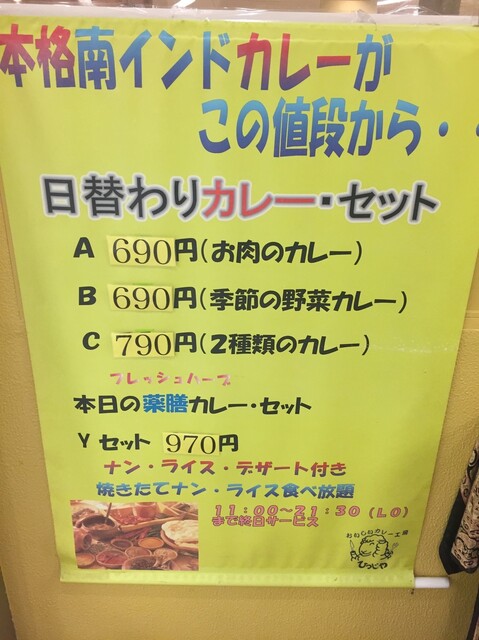 本格南インドカレーが
この値段から・・
日替わりカレー・セット
A 690円(お肉のカレー)
B 690円(季節の野菜カレー)
C 790円(2種類のカレー)
フレッシュハーブ
本日の薬膳カレー・セット
Yセット 970円
ナン・ライス・デザート付き
焼きたてナン・ライス食べ放題
11:00~21:30(LO)
まで終日サービス
おいしいカレー工房
ひつじや